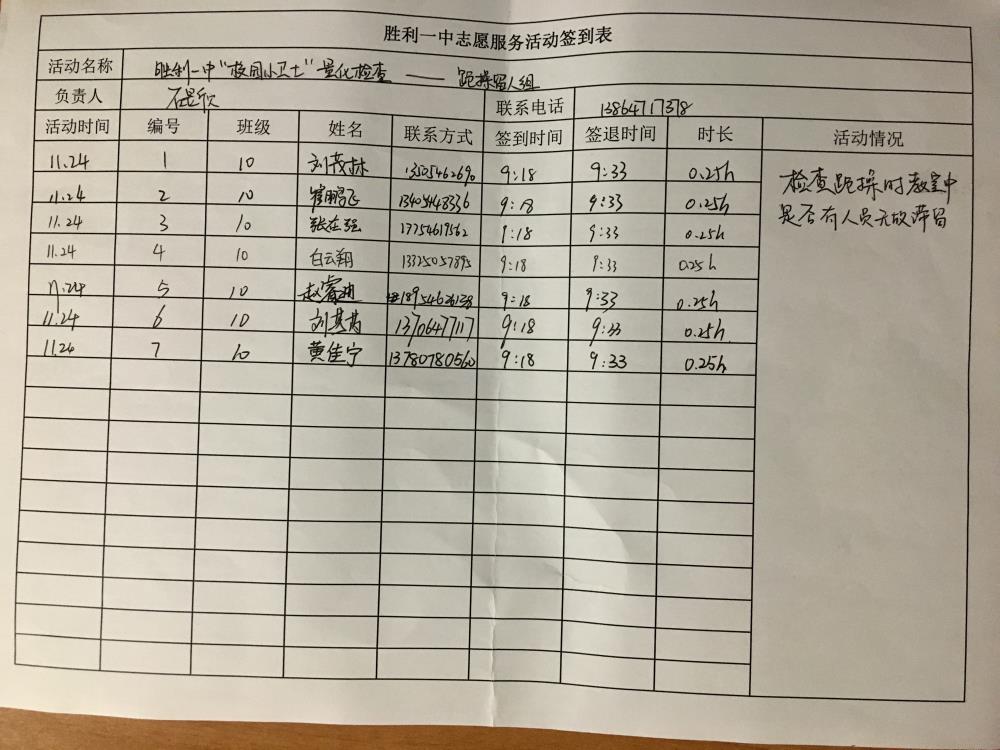 胜利一中志愿服务活动签到表
活动名称 胜利一中"校园小卫士"量化检查——跑操留人组
负责人 石昆欣 联系电话 13864717378
活动时间 编号 班级 姓名 联系方式 签到时间 签退时间 时长 活动情况
11.24 1 10 刘茂林 13505462690 9:18 9:33 0.25h 检查跑操时教室中
11.24 2 10 崔鹏飞 13405448336 9:18 9:33 0.25h 是否有人员无故滞留
11.24 3 10 张在强 17754619562 9:18 9:33 0.25h
11.24 4 10 白云翔 13325057895 9:18 9:33 0.25h
11.24 5 10 赵睿 18954626138 9:18 9:33 0.25h
11.24 6 10 刘其 13706477117 9:18 9:33 0.25h
11.24 7 10 黄佳宁 13780780560 9:18 9:33 0.25h